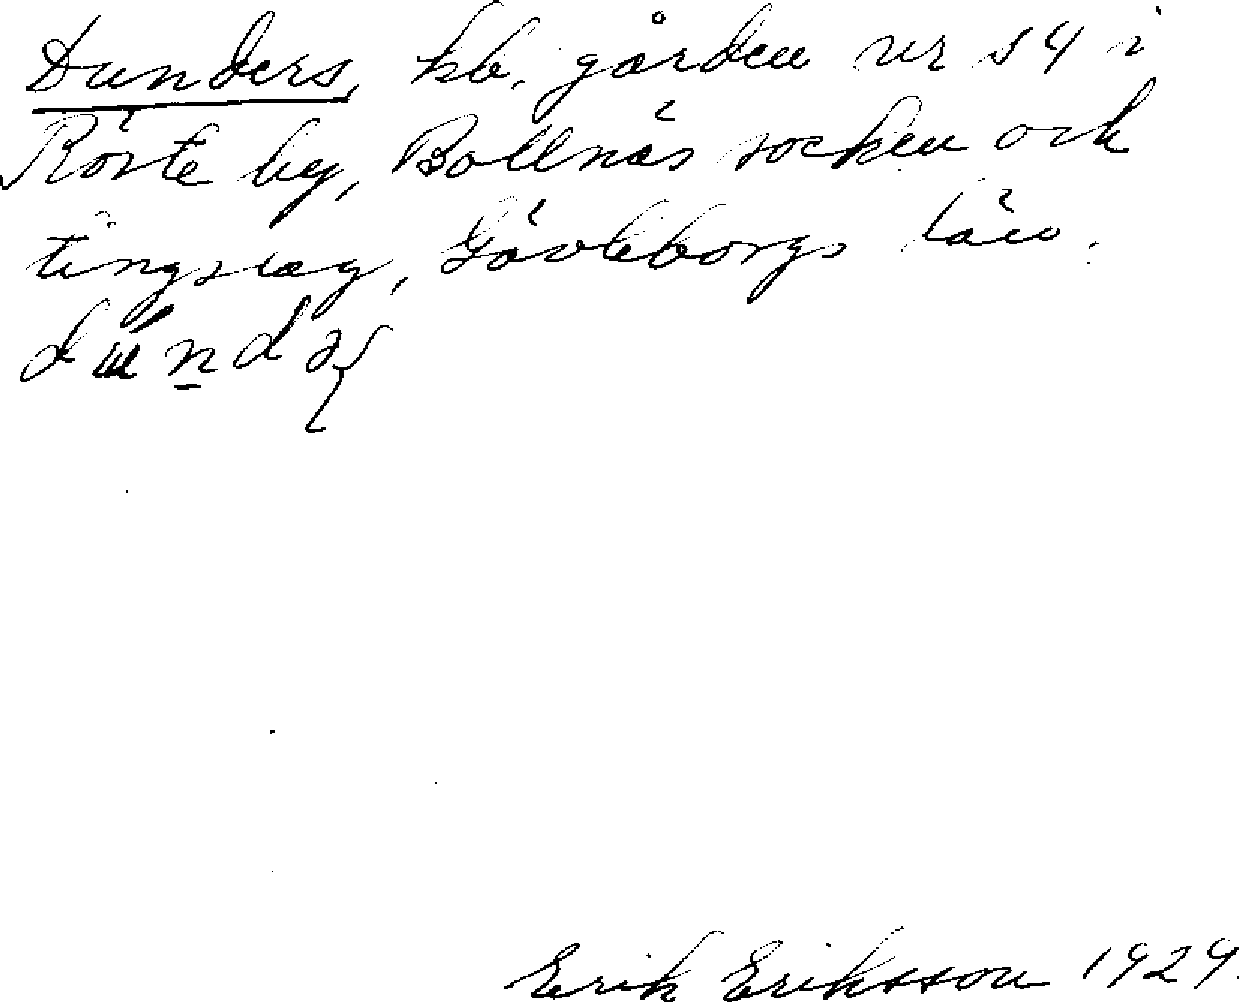 Dunders, kb. gården nr 54 i
Röste by, Bollnäs socken och
tingslag, Gävleborgs län.
Erik Eriksson 1929.